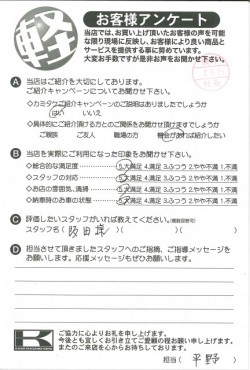 軽
お客様アンケート
当店では、お買い上げ頂いたお客様の声を可能
な限り現場に反映し、お客様により良い商品と
サービスを提供する事に努めています。
大変お手数ですが是非お声をお聞かせ下さい。
A 当店はご紹介を大切にしております。
ご紹介キャンペーンについてお聞かせ下さい。
◇カミタケご紹介キャンペーンのご説明はありましたでしょうか
はい いいえ
◇具体的にご紹介頂ける方とのご関係をお聞かせ頂けますでしょうか
ご親族 ご友人 職場の方 機会があれば紹介したい
B 当店を実際にご利用になった印象をお聞かせ下さい。
◇総合的な満足度 5.大満足 4.満足 3.ふつう 2.やや不満 1.不満
◇スタッフの対応 5.大満足 4.満足 3.ふつう 2.やや不満 1.不満
◇お店の雰囲気、清掃 5.大満足 4.満足 3.ふつう 2.やや不満 1.不満
◇納車時のお車の状態 5.大満足 4.満足 3.ふつう 2.やや不満 1.不満
C 評価したいスタッフがいれば教えてください。(複数回答可)
スタッフ名( 阪田 )( )( )
D 担当させて頂きましたスタッフへのご指摘、ご指導メッセージを
お願いします。応援メッセージもぜひお願いします。
K
ご協力に心よりお礼を申し上げます。
今後とも宜しくお引き立てご愛顧の程お願い申し上げます。
またのご来店を心からお待ちしております。
担当( 平野 )